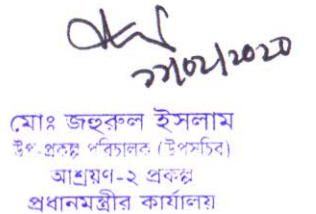 মোঃ জহুরুল ইসলাম
উপ-প্রকল্প পরিচালক (উপসচিব)
আশ্রয়ণ-২ প্রকল্প
প্রধানমন্ত্রীর কার্যালয়